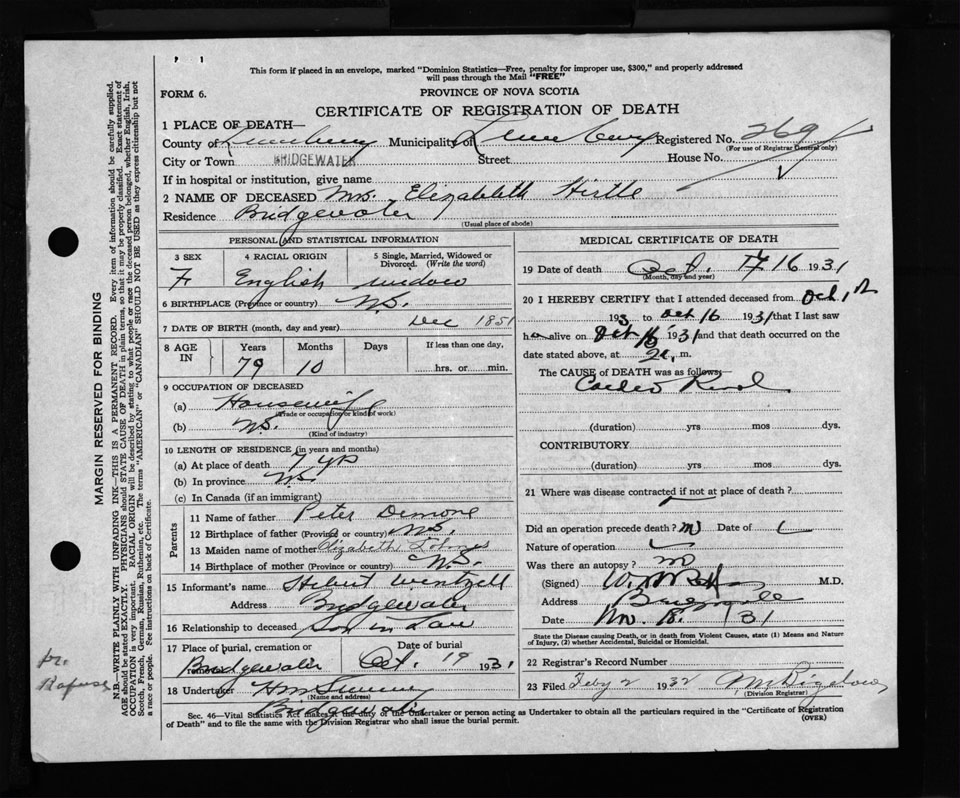 This form if placed in an envelope, marked "Dominion Statistics—Free, penalty for improper use, $300," and properly addressed
will pass through the Mail "FREE"
FORM 6.
PROVINCE OF NOVA SCOTIA
CERTIFICATE OF REGISTRATION OF DEATH
1 PLACE OF DEATH—
County of Lunenburg Municipality of Lunenburg Registered No. 269
(For use of Registrar General only)
City or Town BRIDGEWATER Street House No.
If in hospital or institution, give name
2 NAME OF DECEASED Mrs. Elizabeth Hirtle
Residence Bridgewater
(Usual place of abode)
PERSONAL AND STATISTICAL INFORMATION
3 SEX 4 RACIAL ORIGIN 5 Single, Married, Widowed or
Divorced. (Write the word)
F English widow
6 BIRTHPLACE (Province or country) N.S.
7 DATE OF BIRTH (month, day and year) Dec 1851
8 AGE IN Years Months Days If less than one day,
79 10 hrs. or min.
9 OCCUPATION OF DECEASED
(a) Housewife
(Trade or occupation or kind of work)
(b) N.S.
(Kind of industry)
10 LENGTH OF RESIDENCE (in years and months)
(a) At place of death 7 yrs
(b) In province N.S.
(c) In Canada (if an immigrant)
Parents
11 Name of father Peter Demone
12 Birthplace of father (Province or country) N.S.
13 Maiden name of mother Elizabeth
14 Birthplace of mother (Province or country) N.S.
15 Informant's name Hibert Wentzell
Address Bridgewater
16 Relationship to deceased Son in Law
17 Place of burial, cremation or removal Date of burial
Bridgewater Oct. 19 1931
18 Undertaker
(Name and address)
Bridgewater
MEDICAL CERTIFICATE OF DEATH
19 Date of death Oct. 17 16 1931
(Month, day and year)
20 I HEREBY CERTIFY that I attended deceased from Oct 1st
193 to Oct 16 1931 that I last saw
h alive on Oct 16 1931 and that death occurred on the
date stated above, at m.
The CAUSE of DEATH was as follows:
(duration) yrs mos dys.
CONTRIBUTORY
(duration) yrs mos dys.
21 Where was disease contracted if not at place of death?
Did an operation precede death? no Date of
Nature of operation
Was there an autopsy? no
(Signed) M.D.
Address
Date Nov. 18. 31
State the Disease causing Death, or in death from Violent Causes, state (1) Means and Nature
of Injury, (2) whether Accidental, Suicidal or Homicidal.
22 Registrar's Record Number
23 Filed Feby 2 1932
(Division Registrar)
Sec. 46—Vital Statistics Act makes it the duty of the Undertaker or person acting as Undertaker to obtain all the particulars required in the "Certificate of Registration
of Death" and to file the same with the Division Registrar who shall issue the burial permit. (OVER)
MARGIN RESERVED FOR BINDING
N.B.—WRITE PLAINLY WITH UNFADING INK—THIS IS A PERMANENT RECORD. Every item of information should be carefully supplied.
AGE should be stated EXACTLY. PHYSICIANS should STATE CAUSE OF DEATH in plain terms, so that it may be properly classified. Exact statement of
OCCUPATION is very important. RACIAL ORIGIN will be described by stating to what people or race the deceased person belonged, whether English, Irish,
Scotch, French, German, Russian, Ruthenian, etc. The terms "AMERICAN" or "CANADIAN" SHOULD NOT BE USED as they express citizenship but not
a race or people. See instructions on back of Certificate.
Dr.
Rafuse